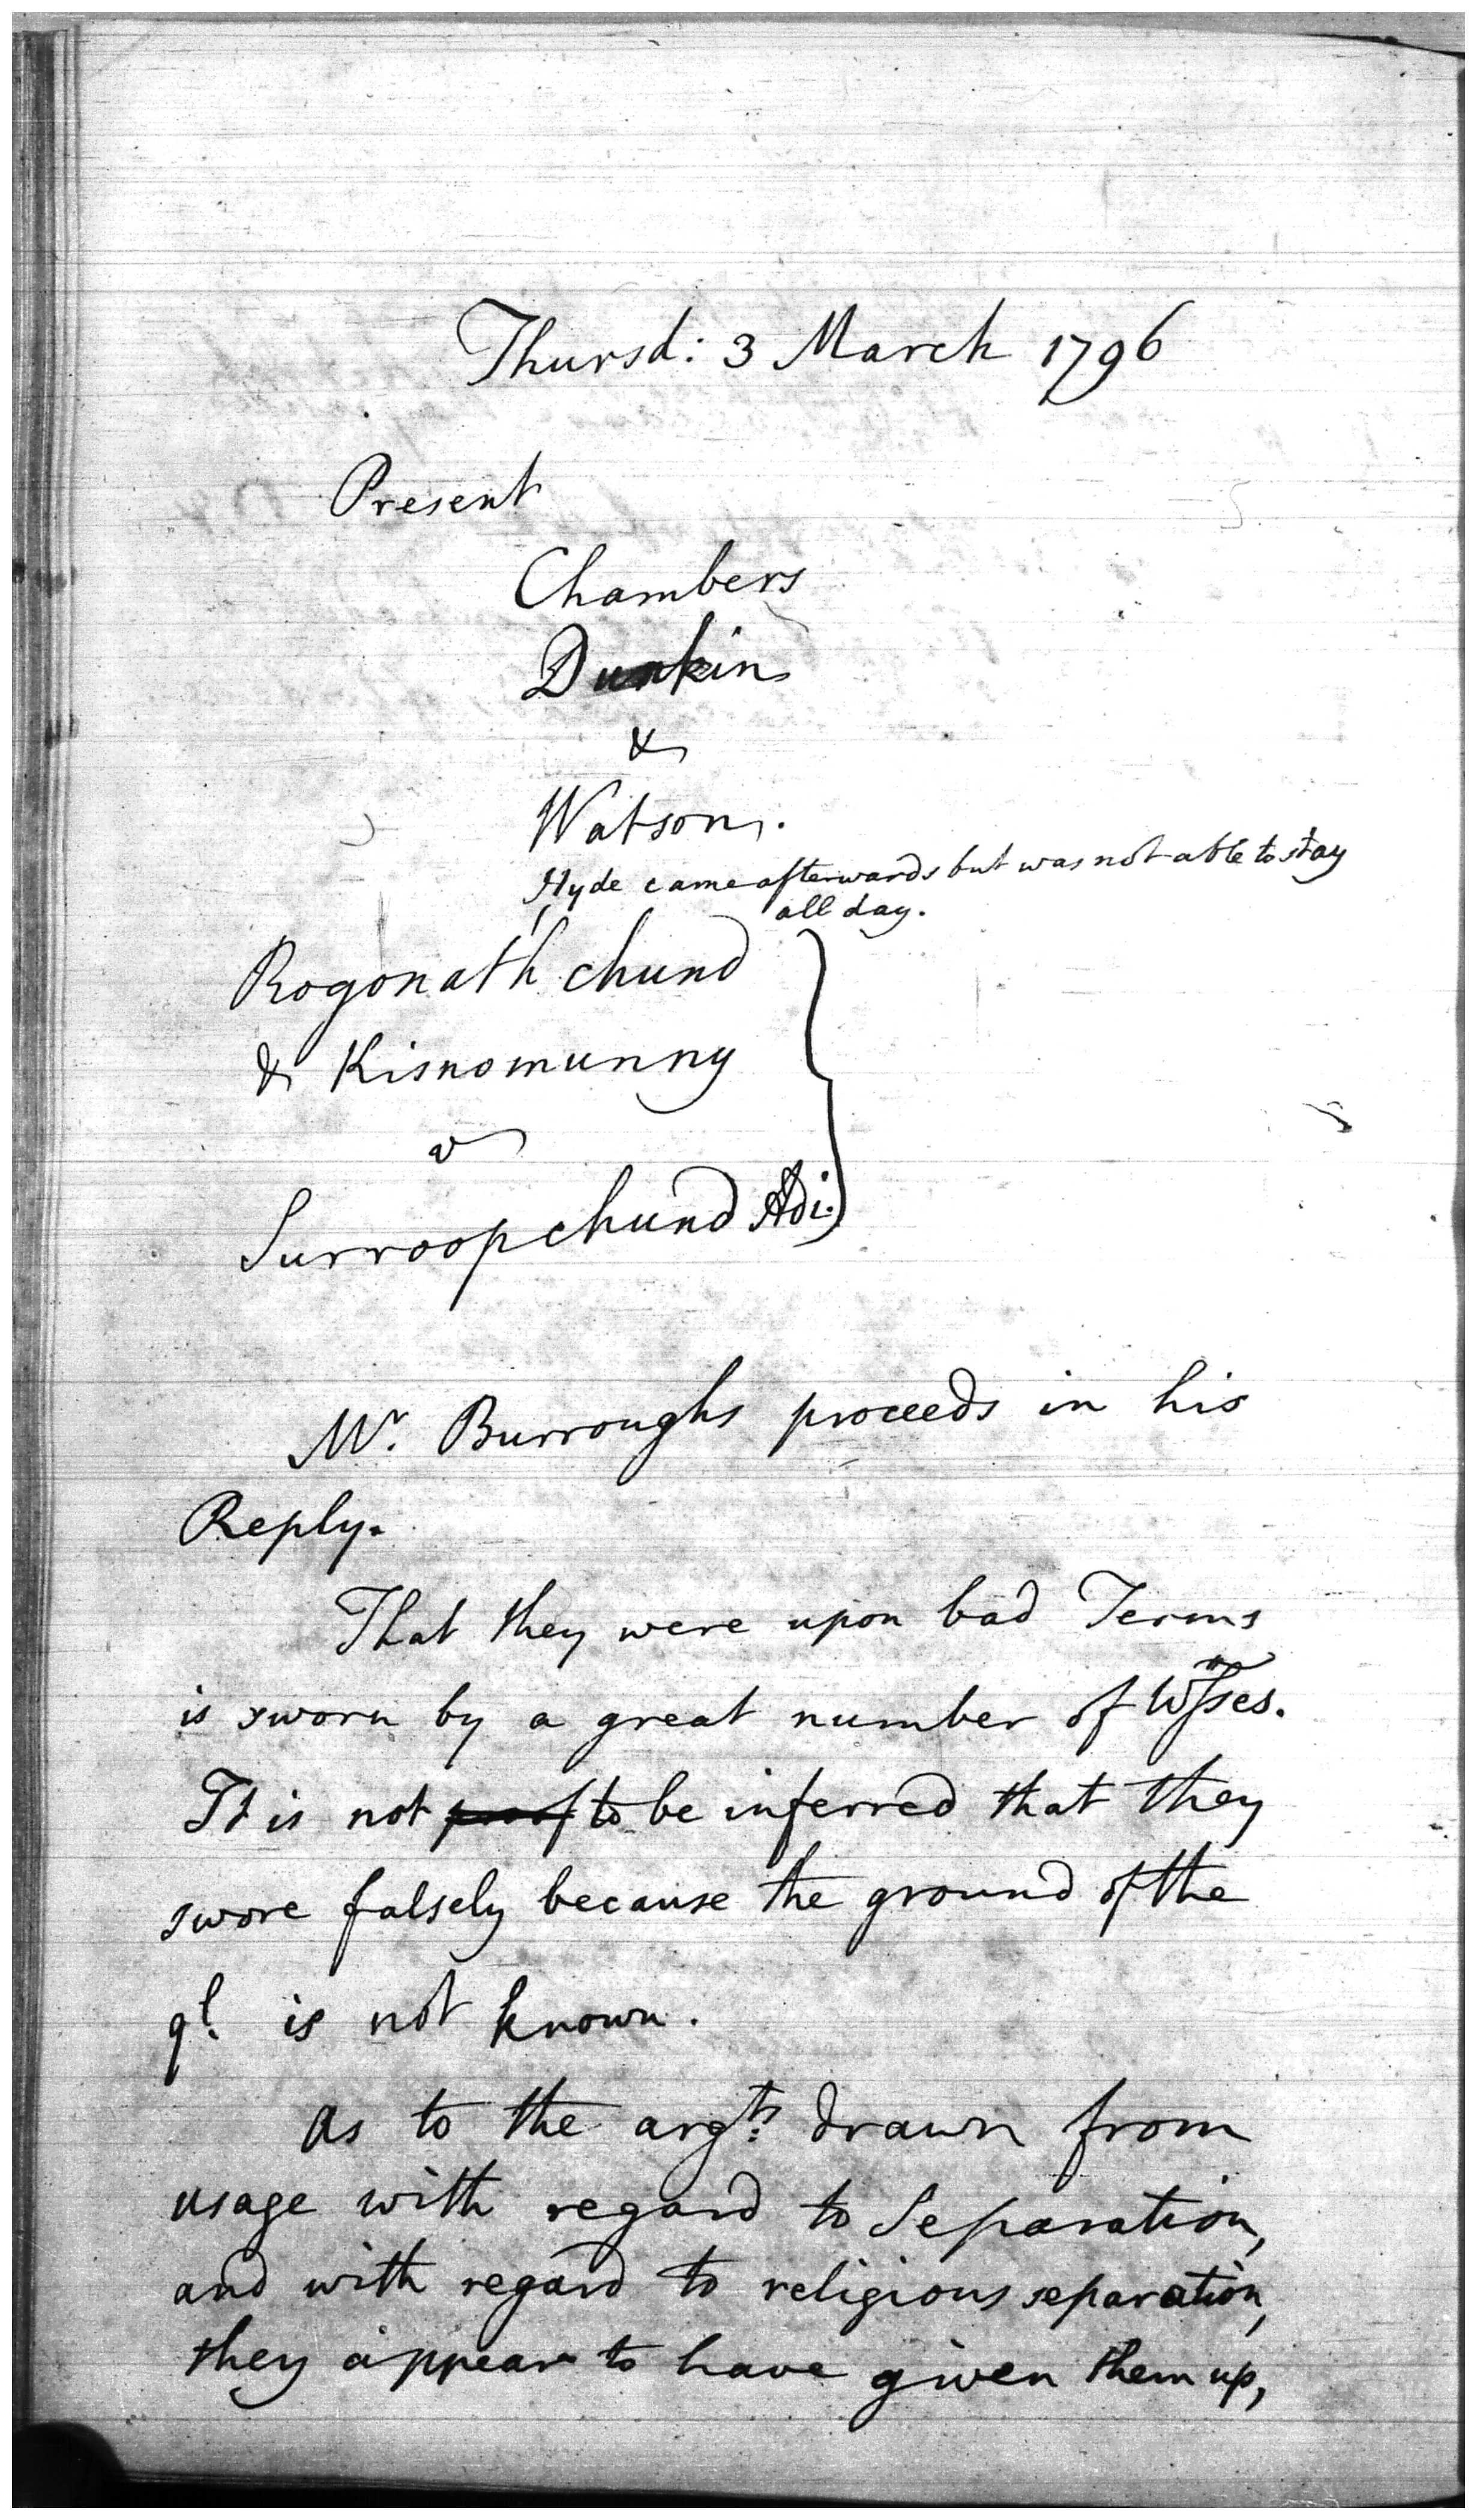 Thursd: 3 March 1796
Present
Chambers
Dunkin
&
Watson.
Hyde came afterwards but was not able to stay
all day.
Rogonath chund
& Kisnomunny
v
Surroopchund Adi:
Mr. Burroughs proceeds in his
Reply.
That they were upon bad Terms
is sworn by a great number of Wsses.
It is not proof to be inferred that they
swore falsely because the ground of the
ql. is not known.
As to the argts: drawn from
usage with regard to Separation,
and with regard to religious separation,
they appear to have given them up,